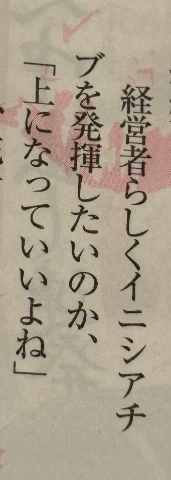 経営者らしくイニシアチ
ブを発揮したいのか、
「上になっていいよね」